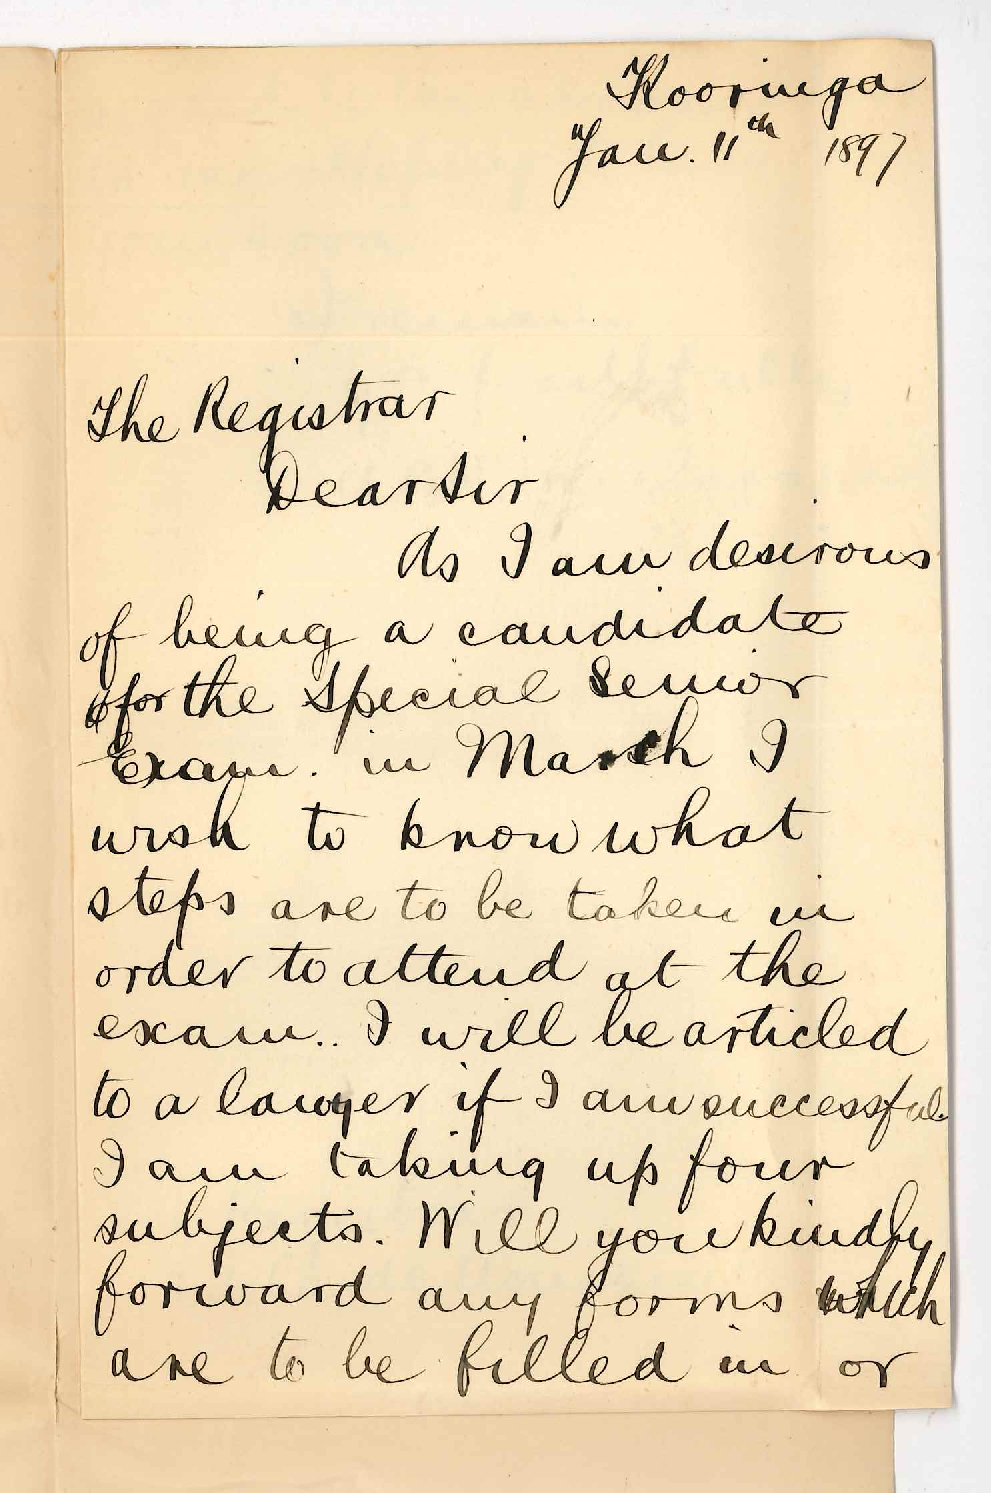 Kooringa
Jan. 11th 1897
The Registrar
Dear Sir
As I am desirous
of being a candidate
for the Special Senior
Exam. in March I
wish to know what
steps are to be taken in
order to attend at the
exam.. I will be articled
to a lawyer if I am successful.
I am taking up four
subjects. Will you kindly
forward any forms which
are to be filled in or